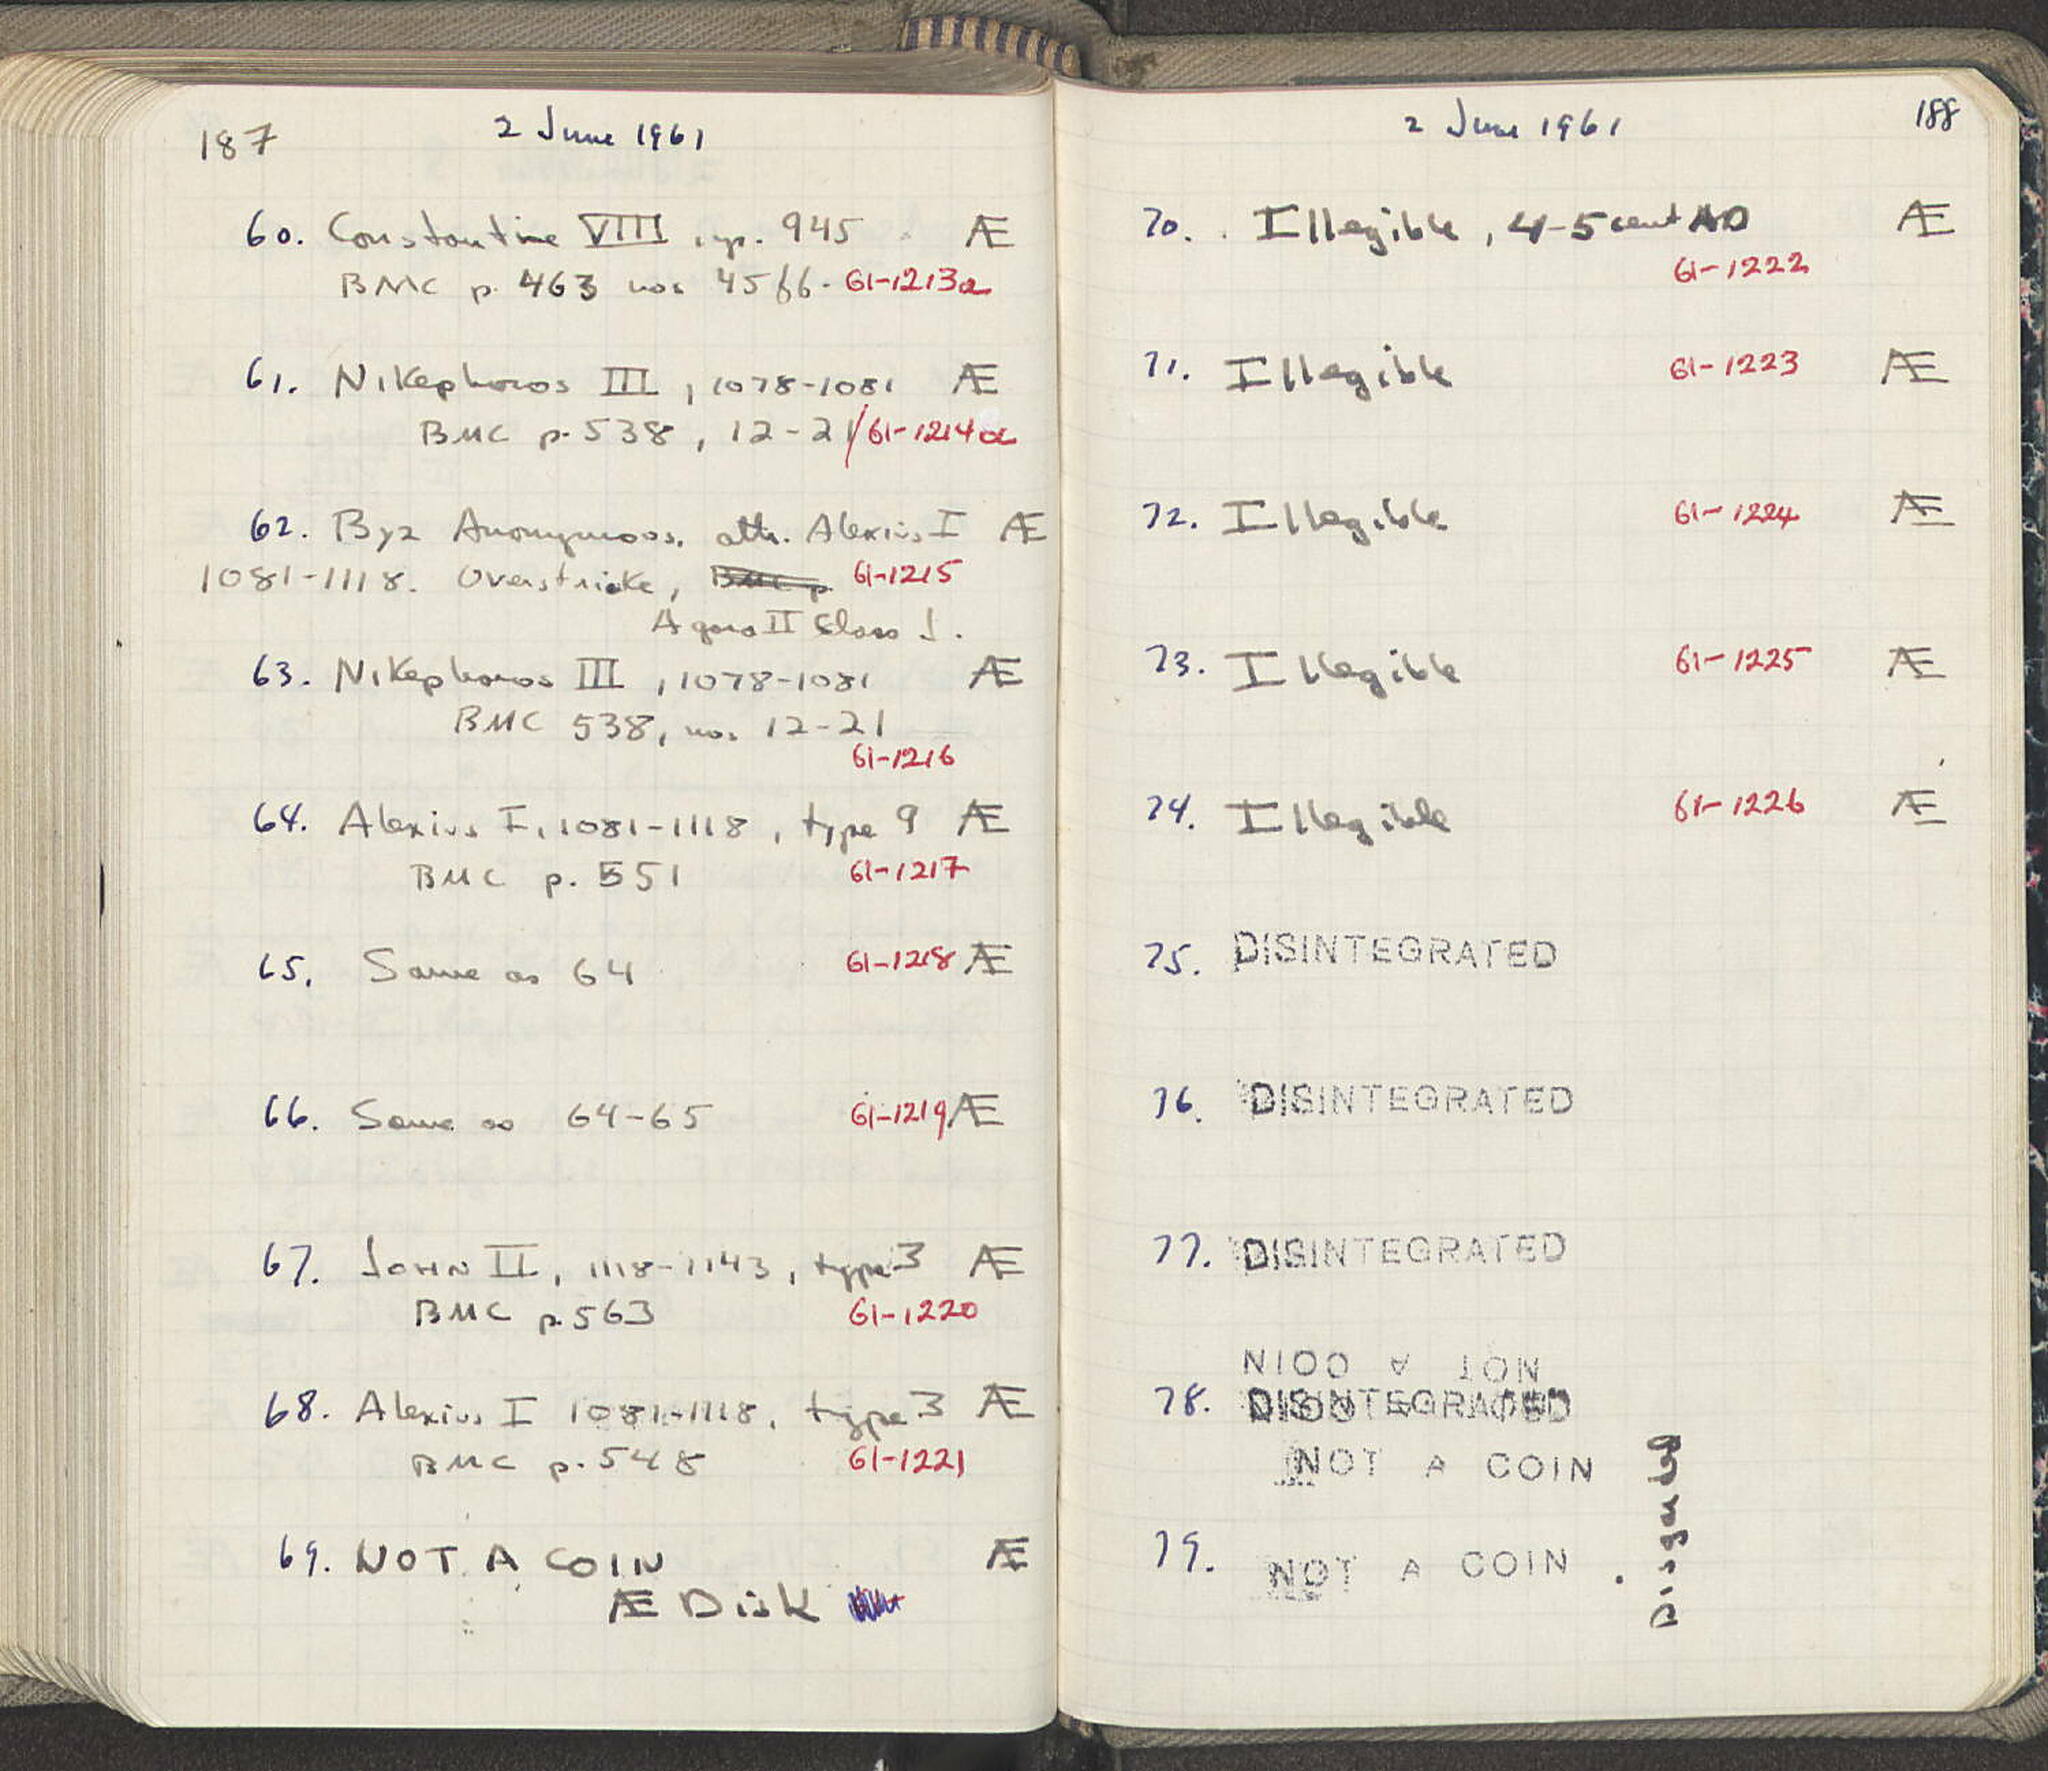 187
2 June 1961
60. Constantine VIII, 945 Æ
BMC p. 463 nos 61-1213a
61. Nikephoros III, 1078-1081 Æ
BMC p. 538, 12-21/61-1214a
62. Byz Anonymous. attr. Alexius I Æ
1081-1118. Overstrike, BMC p. 61-1215
Agora II Class J.
63. Nikephoros III, 1078-1081 Æ
BMC 538, nos 12-21
61-1216
64. Alexius I, 1081-1118, type 9 Æ
BMC p. 551 61-1217
65. Same as 64 61-1218 Æ
66. Same as 64-65 61-1219 Æ
67. JOHN II, 1118-1143, type 3 Æ
BMC p. 563 61-1220
68. Alexius I 1081-1118, type 3 Æ
BMC p. 548 61-1221
69. NOT A COIN Æ
Æ Disk
2 June 1961
188
70. Illegible, 4-5 cent AD Æ
61-1222
71. Illegible 61-1223 Æ
72. Illegible 61-1224 Æ
73. Illegible 61-1225 Æ
74. Illegible 61-1226 Æ
75. DISINTEGRATED
76. DISINTEGRATED
77. DISINTEGRATED
NOT A COIN
78. DISINTEGRATED
NOT A COIN
79. NOT A COIN.
Disgarded